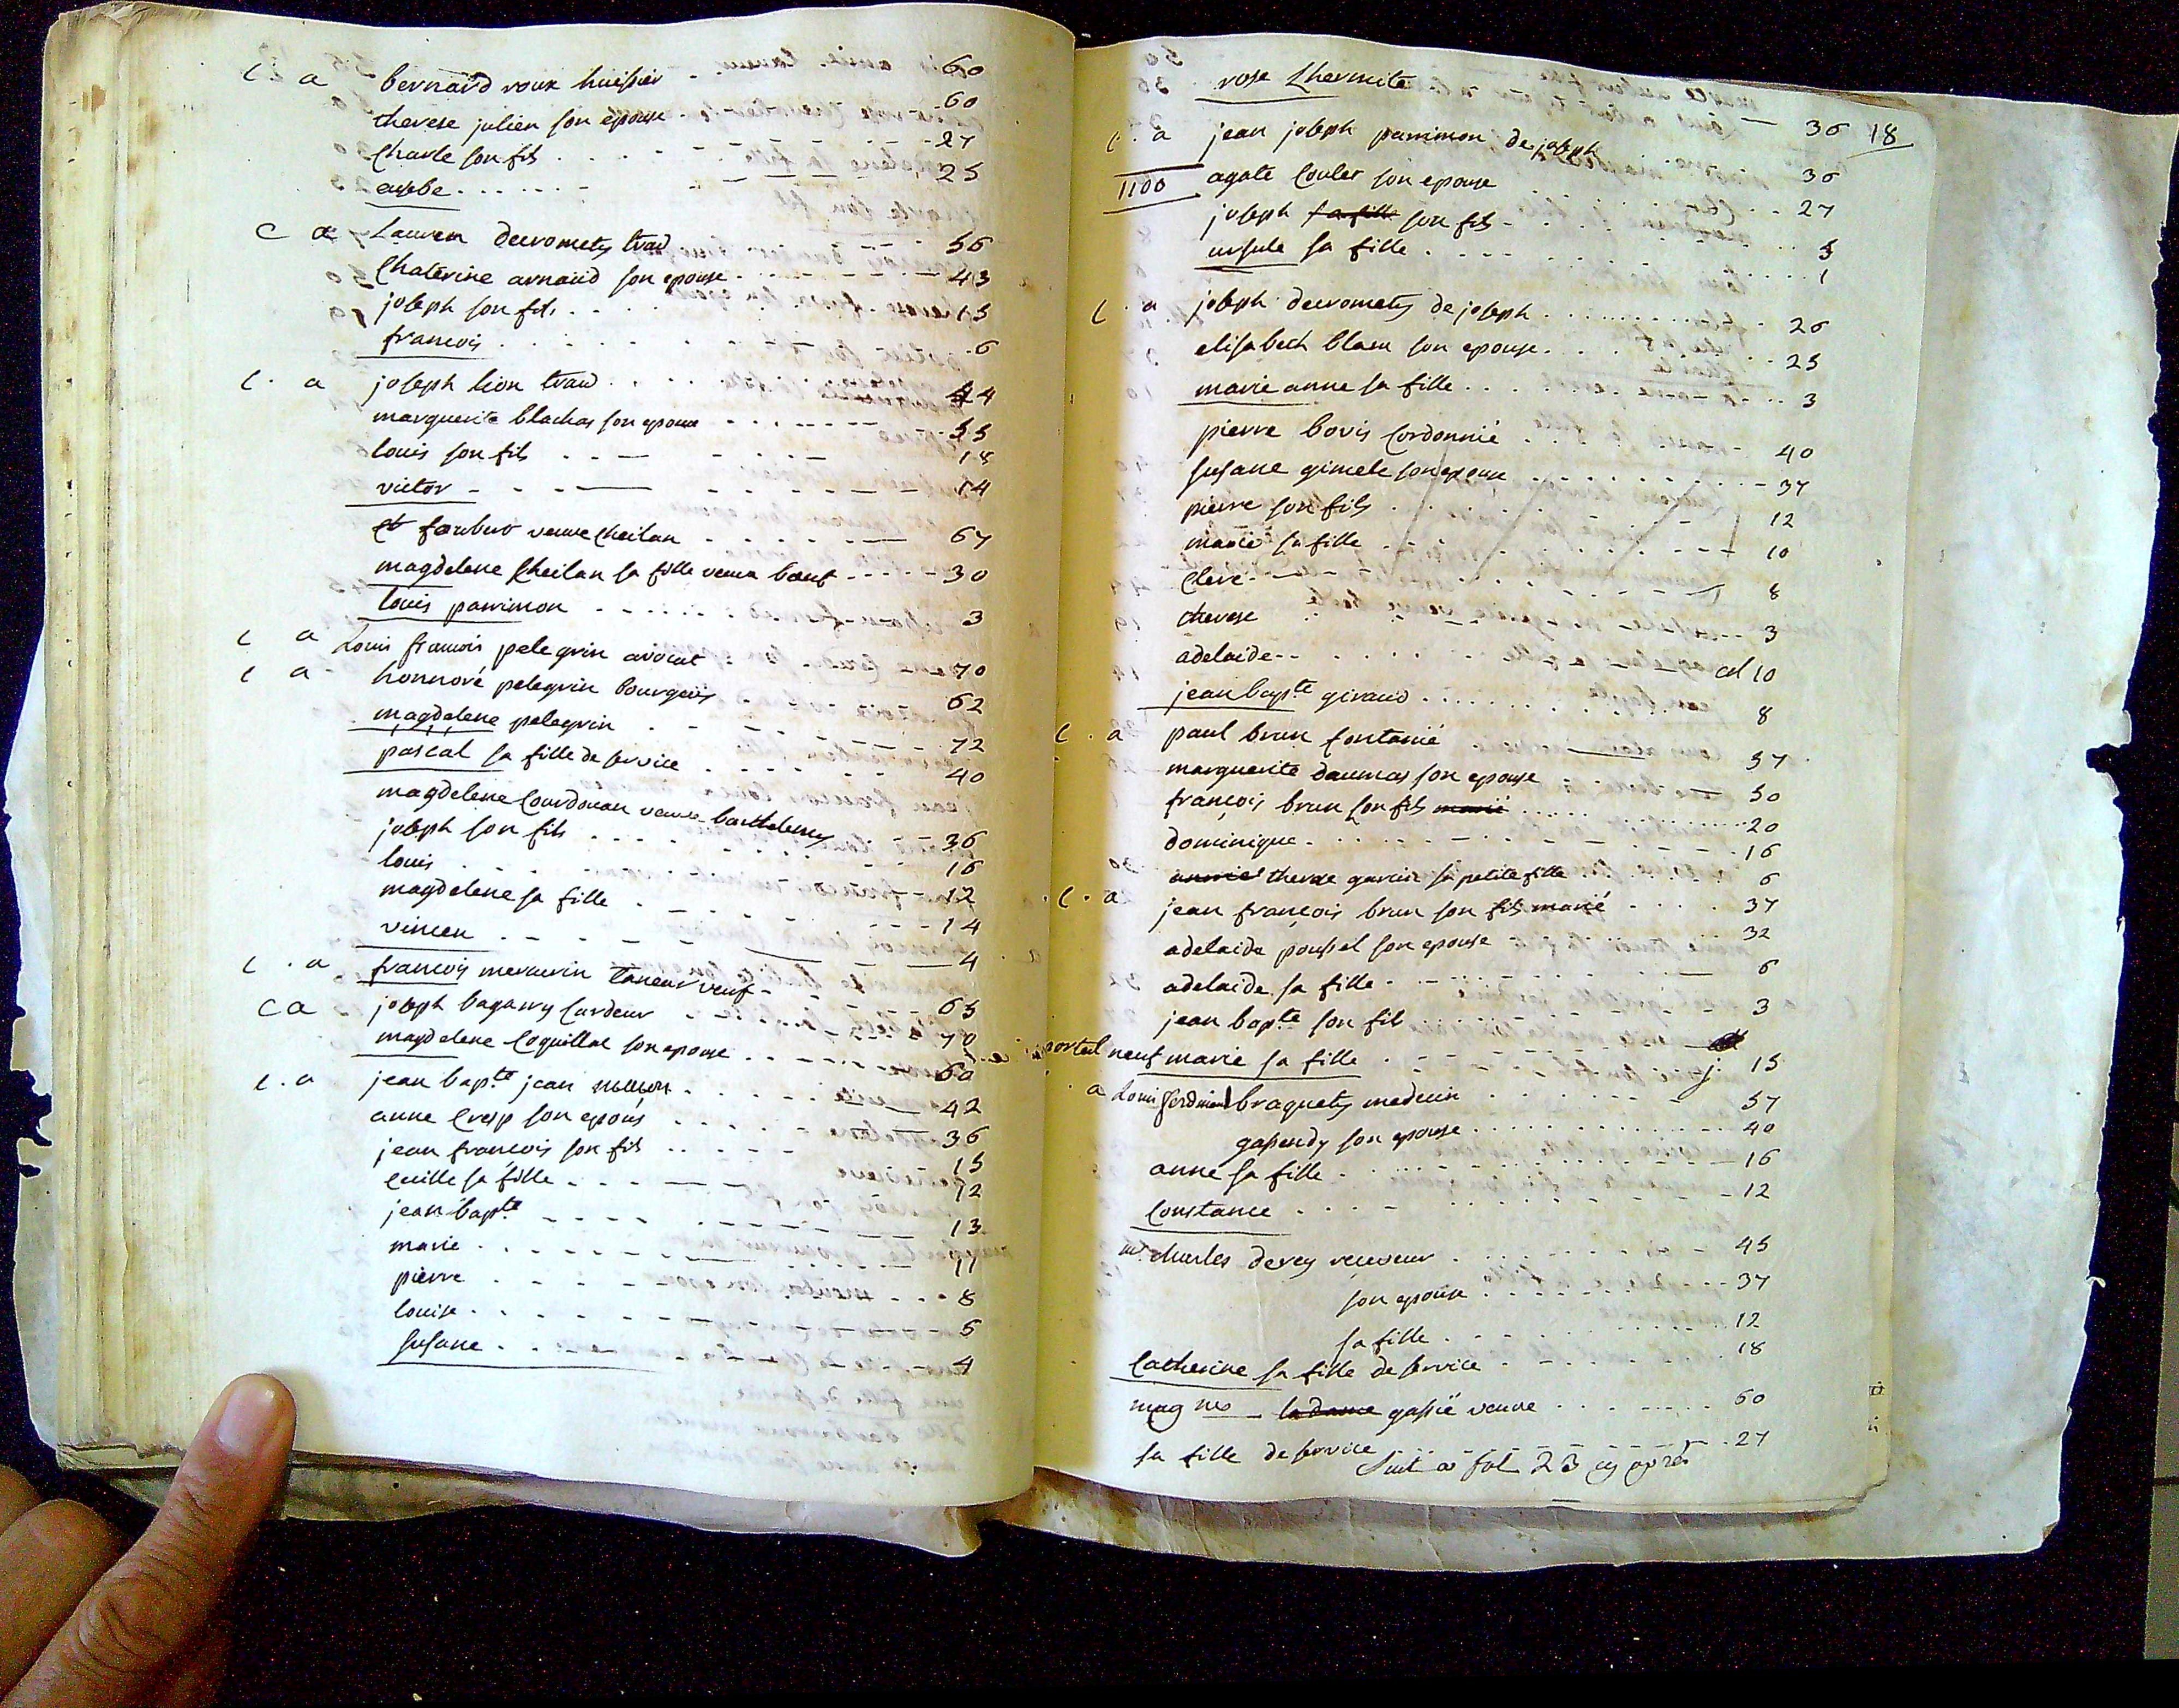 c a bernard roux huissier 60
therese julien son epouse 60
Charle son fils 27
eusebe 25
c a Lauren decrometz trav 56
Chaterine arnaud son epouse 43
joseph son fils 15
francois 6
c. a joseph lion trav 44
marguerite blachas son epouse 55
louis son fils 18
victor 14
joubert veuve Cheilan 67
magdelene Cheilan sa fille veuve 30
Louis parrimon 3
c a Louis francois pelegrin avocat 70
c a honnoré pelegrin bourgeois 62
magdelene pelegrin 72
pascal sa fille de service 40
magdelene Courdouan veuve barthelemy 36
joseph son fils 16
louis 12
magdelene sa fille 14
vincen 4
c. a francois meraurin taneur veuf 65
c a joseph bagarry Cardeur 70
magdelene Coquillat son epouse 60
c. a jean bapte jean 42
anne Cresp son epous 36
jean francois son fils 15
sa fille 12
jean bapte 13
marie 11
pierre 8
louise 5
susane 4
18
rose Lhermite 36
c. a jean joseph parrimon de joseph 36
1100 agate Couler son epouse 27
joseph sa fille son fils 3
ursule sa fille 1
c. a joseph decrometz de joseph 26
elisabech blanc son epouse 25
marie anne sa fille 3
pierre bovis Cordonnié 40
susane gimele son epouse 37
pierre son fils 12
marie sa fille 10
Clere 8
therese 3
adelaide 10
jean bapte giraud 8
c. a paul brun fontanié 57
marguerite daumas son epouse 50
francois brun son fils marié 20
dominique 16
therese garcin sa petite fille 6
c. a jean francois brun son fils marié 37
adelaide poussel son epouse 32
adelaide sa fille 6
jean bapte son fil 3
portail neuf marie sa fille j 15
a Louis ferdinand braquety medecin 57
gassendy son epouse 40
anne sa fille 16
Constance 12
mr. charles derey receveur 45
son epouse 37
sa fille 12
Catherine sa fille de service 18
la dame gassié veuve 60
sa fille de service 27
Suit a fol 23 cy après